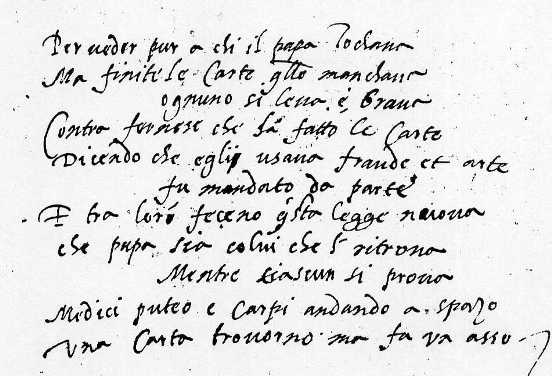 Per veder pur a chi il papa Tochava
Ma finite le Carte q̃llo manchava
ognuno si leva e brava
Contra fernese che hà fatto le Carte
Dicendo che egli usava fraude et arte
fu mandato da parte
E tra loro feceno q̃sta legge nuova
che papa sia colui che lo ritrova
Mentre ciascun si prova
Medici puteo e Carpi andando a spazo
Una Carta trovorno ma fa va asso